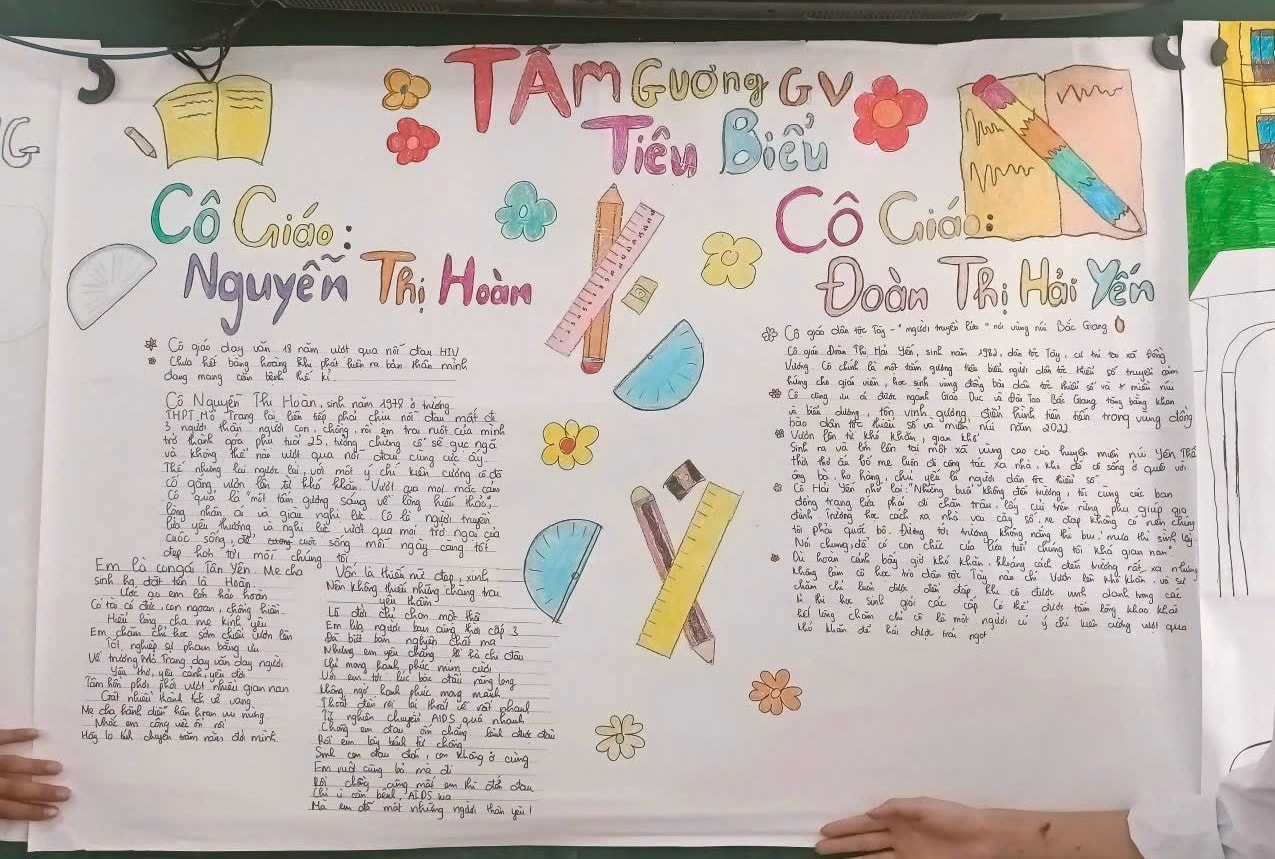 G
TẤM Gương GV
Tiêu Biểu
Cô Giáo:
Nguyễn Thị Hoàn
Cô giáo dạy văn 18 năm vượt qua nỗi đau HIV
Chưa hết bàng hoàng khi phát hiện ra bản thân mình
đang mang căn bệnh thế kỉ
Cô Nguyễn Thị Hoàn, sinh năm 1978 ở trường
THPT Mỏ Trạng lại liên tiếp phải chịu nỗi đau mất đi
3 người thân: người con, chồng, rồi em trai ruột của mình
trở thành góa phụ tuổi 25, tưởng chừng cô sẽ gục ngã
và không thể nào vượt qua nỗi đau cùng cực ấy.
Thế nhưng lại ngược lại, với một ý chí kiên cường cô đã
cố gắng vươn lên từ khó khăn. Vượt qua mọi mặc cảm
Cô quả là "một tấm gương sáng về lòng hiếu thảo,
lòng nhân ái và giàu nghị lực. Cô là người truyền
lửa yêu thương và nghị lực vượt qua mọi trở ngại của
cuộc sống, để cuộc sống mỗi ngày càng tốt
đẹp hơn tới mỗi chúng tôi
Em là con gái Tân Yên. Mẹ cha
sinh hạ, đặt tên là Hoàn
Ước ao em lớn hoàn
Có tài có đức, con ngoan, chồng hiền
Hiếu lòng cha mẹ kính yêu
Em chăm chỉ học sớm chiều vươn lên
Tốt nghiệp sư phạm bằng ưu
Về trường Mỏ Trạng dạy văn dạy người
Yêu thơ, yêu cảnh, yêu đời
Tâm hồn phơi phới vượt nhiều gian nan
Gặt nhiều thành tích vẻ vang
Mẹ cha hãnh diện hân hoan vui mừng
Nhắc em công việc ổn rồi
Hãy lo tính chuyện trăm năm đời mình.
Vốn là thiếu nữ đẹp, xinh,
Nên không thiếu những chàng trai
yêu thầm
Lẽ đời chỉ chọn một thôi
Em lựa người bạn cùng thời cấp 3
Đã biết bạn nghiện chất ma
Nhưng em yêu chẳng lẽ hà chi đâu
Chỉ mong hạnh phúc mỉm cười
Với em tới lúc bạc đầu răng long
Không ngờ hạnh phúc mong manh
Thoắt đến rồi lại thoắt về rất nhanh
Từ nghiện chuyển AIDS quá nhanh
Chồng em đau ốm chẳng lành được đâu
Rồi em lây bệnh từ chồng
Sinh con đau đớn, con không ở cùng
Em ruột cũng bỏ mà đi
Rồi chồng cũng mất em thì đớn đau
Chỉ vì căn bệnh AIDS kia
Mà em đã mất những người thân yêu!
Cô Giáo:
Đoàn Thị Hải Yến
Cô giáo dân tộc Tày - "người truyền lửa" nơi vùng núi Bắc Giang
Cô giáo Đoàn Thị Hải Yến, sinh năm 1982, dân tộc Tày, cư trú tại xã Đồng
Vương. Cô chính là một tấm gương tiêu biểu người dân tộc thiểu số truyền cảm
hứng cho giáo viên, học sinh vùng đồng bào dân tộc thiểu số và miền núi
Cô cũng được ngành Giáo Dục và Đào Tạo Bắc Giang tặng bằng khen
và biểu dương, tôn vinh gương điển hình tiên tiến trong vùng đồng
bào dân tộc thiểu số và miền núi năm 2022.
Vươn lên từ khó khăn, gian khổ
Sinh ra và lớn lên tại một xã vùng cao của huyện miền núi Yên Thế
thời thơ ấu bố mẹ luôn đi công tác xa nhà, khi đó cô sống ở quê với
ông bà, họ hàng, chủ yếu là người dân tộc thiểu số.
Cô Hải Yến nhớ lại: "Những buổi không đến trường, tôi cùng các bạn
đồng trang lứa phải đi chăn trâu, lấy củi trên rừng phụ giúp gia
đình. Trường học cách xa nhà vài cây số, xe đạp không có nên chúng
tôi phải cuốc bộ. Đường tới trường không nắng thì bụi, mưa thì sình lầy
Nói chung, để có con chữ của lứa tuổi chúng tôi khá gian nan"
Dù hoàn cảnh bấy giờ khó khăn, khoảng cách đến trường rất xa nhưng
không làm cô học trò dân tộc Tày nản chí. Vươn lên khó khăn, và sự
chăm chỉ luôn được đền đáp khi cô được vinh danh trong các
kì thi học sinh giỏi các cấp. Có thể được tấm lòng khao khát
hết lòng chăm chỉ cô là một người có ý chí kiên cường vượt qua
khó khăn để hái được trái ngọt